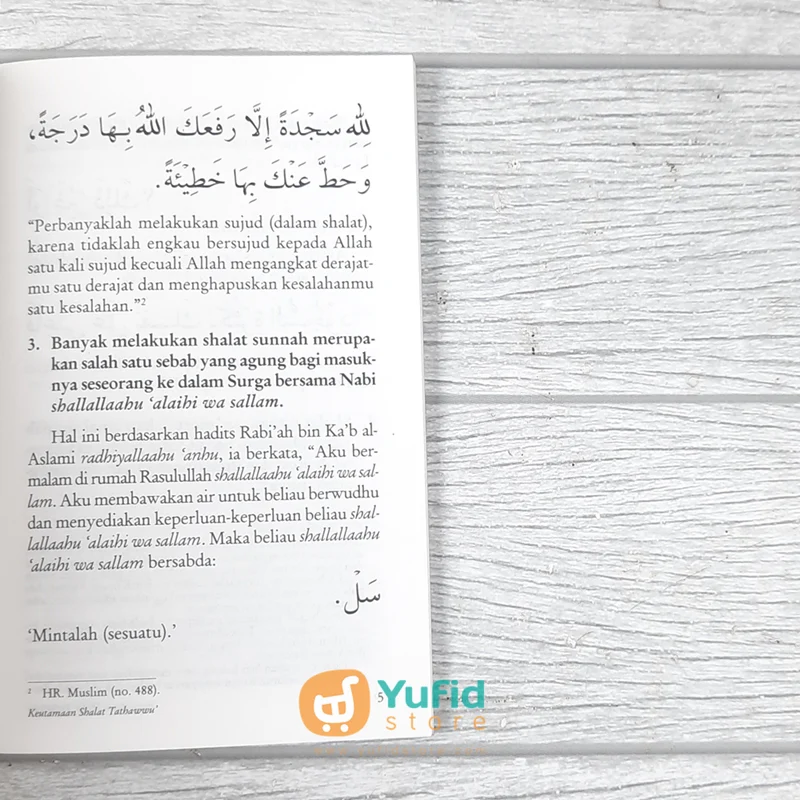 لِلّٰهِ سَجْدَةً إِلَّا رَفَعَكَ اللّٰهُ بِهَا دَرَجَةً،
وَحَطَّ عَنْكَ بِهَا خَطِيْئَةً.
“Perbanyaklah melakukan sujud (dalam shalat),
karena tidaklah engkau bersujud kepada Allah
satu kali sujud kecuali Allah mengangkat derajat-
mu satu derajat dan menghapuskan kesalahanmu
satu kesalahan.”²
3. Banyak melakukan shalat sunnah merupa-
kan salah satu sebab yang agung bagi masuk-
nya seseorang ke dalam Surga bersama Nabi
shallallaahu ‘alaihi wa sallam.
Hal ini berdasarkan hadits Rabi’ah bin Ka’b al-
Aslami radhiyallaahu ‘anhu, ia berkata, “Aku ber-
malam di rumah Rasulullah shallallaahu ‘alaihi wa sal-
lam. Aku membawakan air untuk beliau berwudhu
dan menyediakan keperluan-keperluan beliau shal-
lallaahu ‘alaihi wa sallam. Maka beliau shallallaahu
‘alaihi wa sallam bersabda:
سَلْ.
‘Mintalah (sesuatu).’
² HR. Muslim (no. 488).
Keutamaan Shalat Tathawwu’
5
Yufid
store